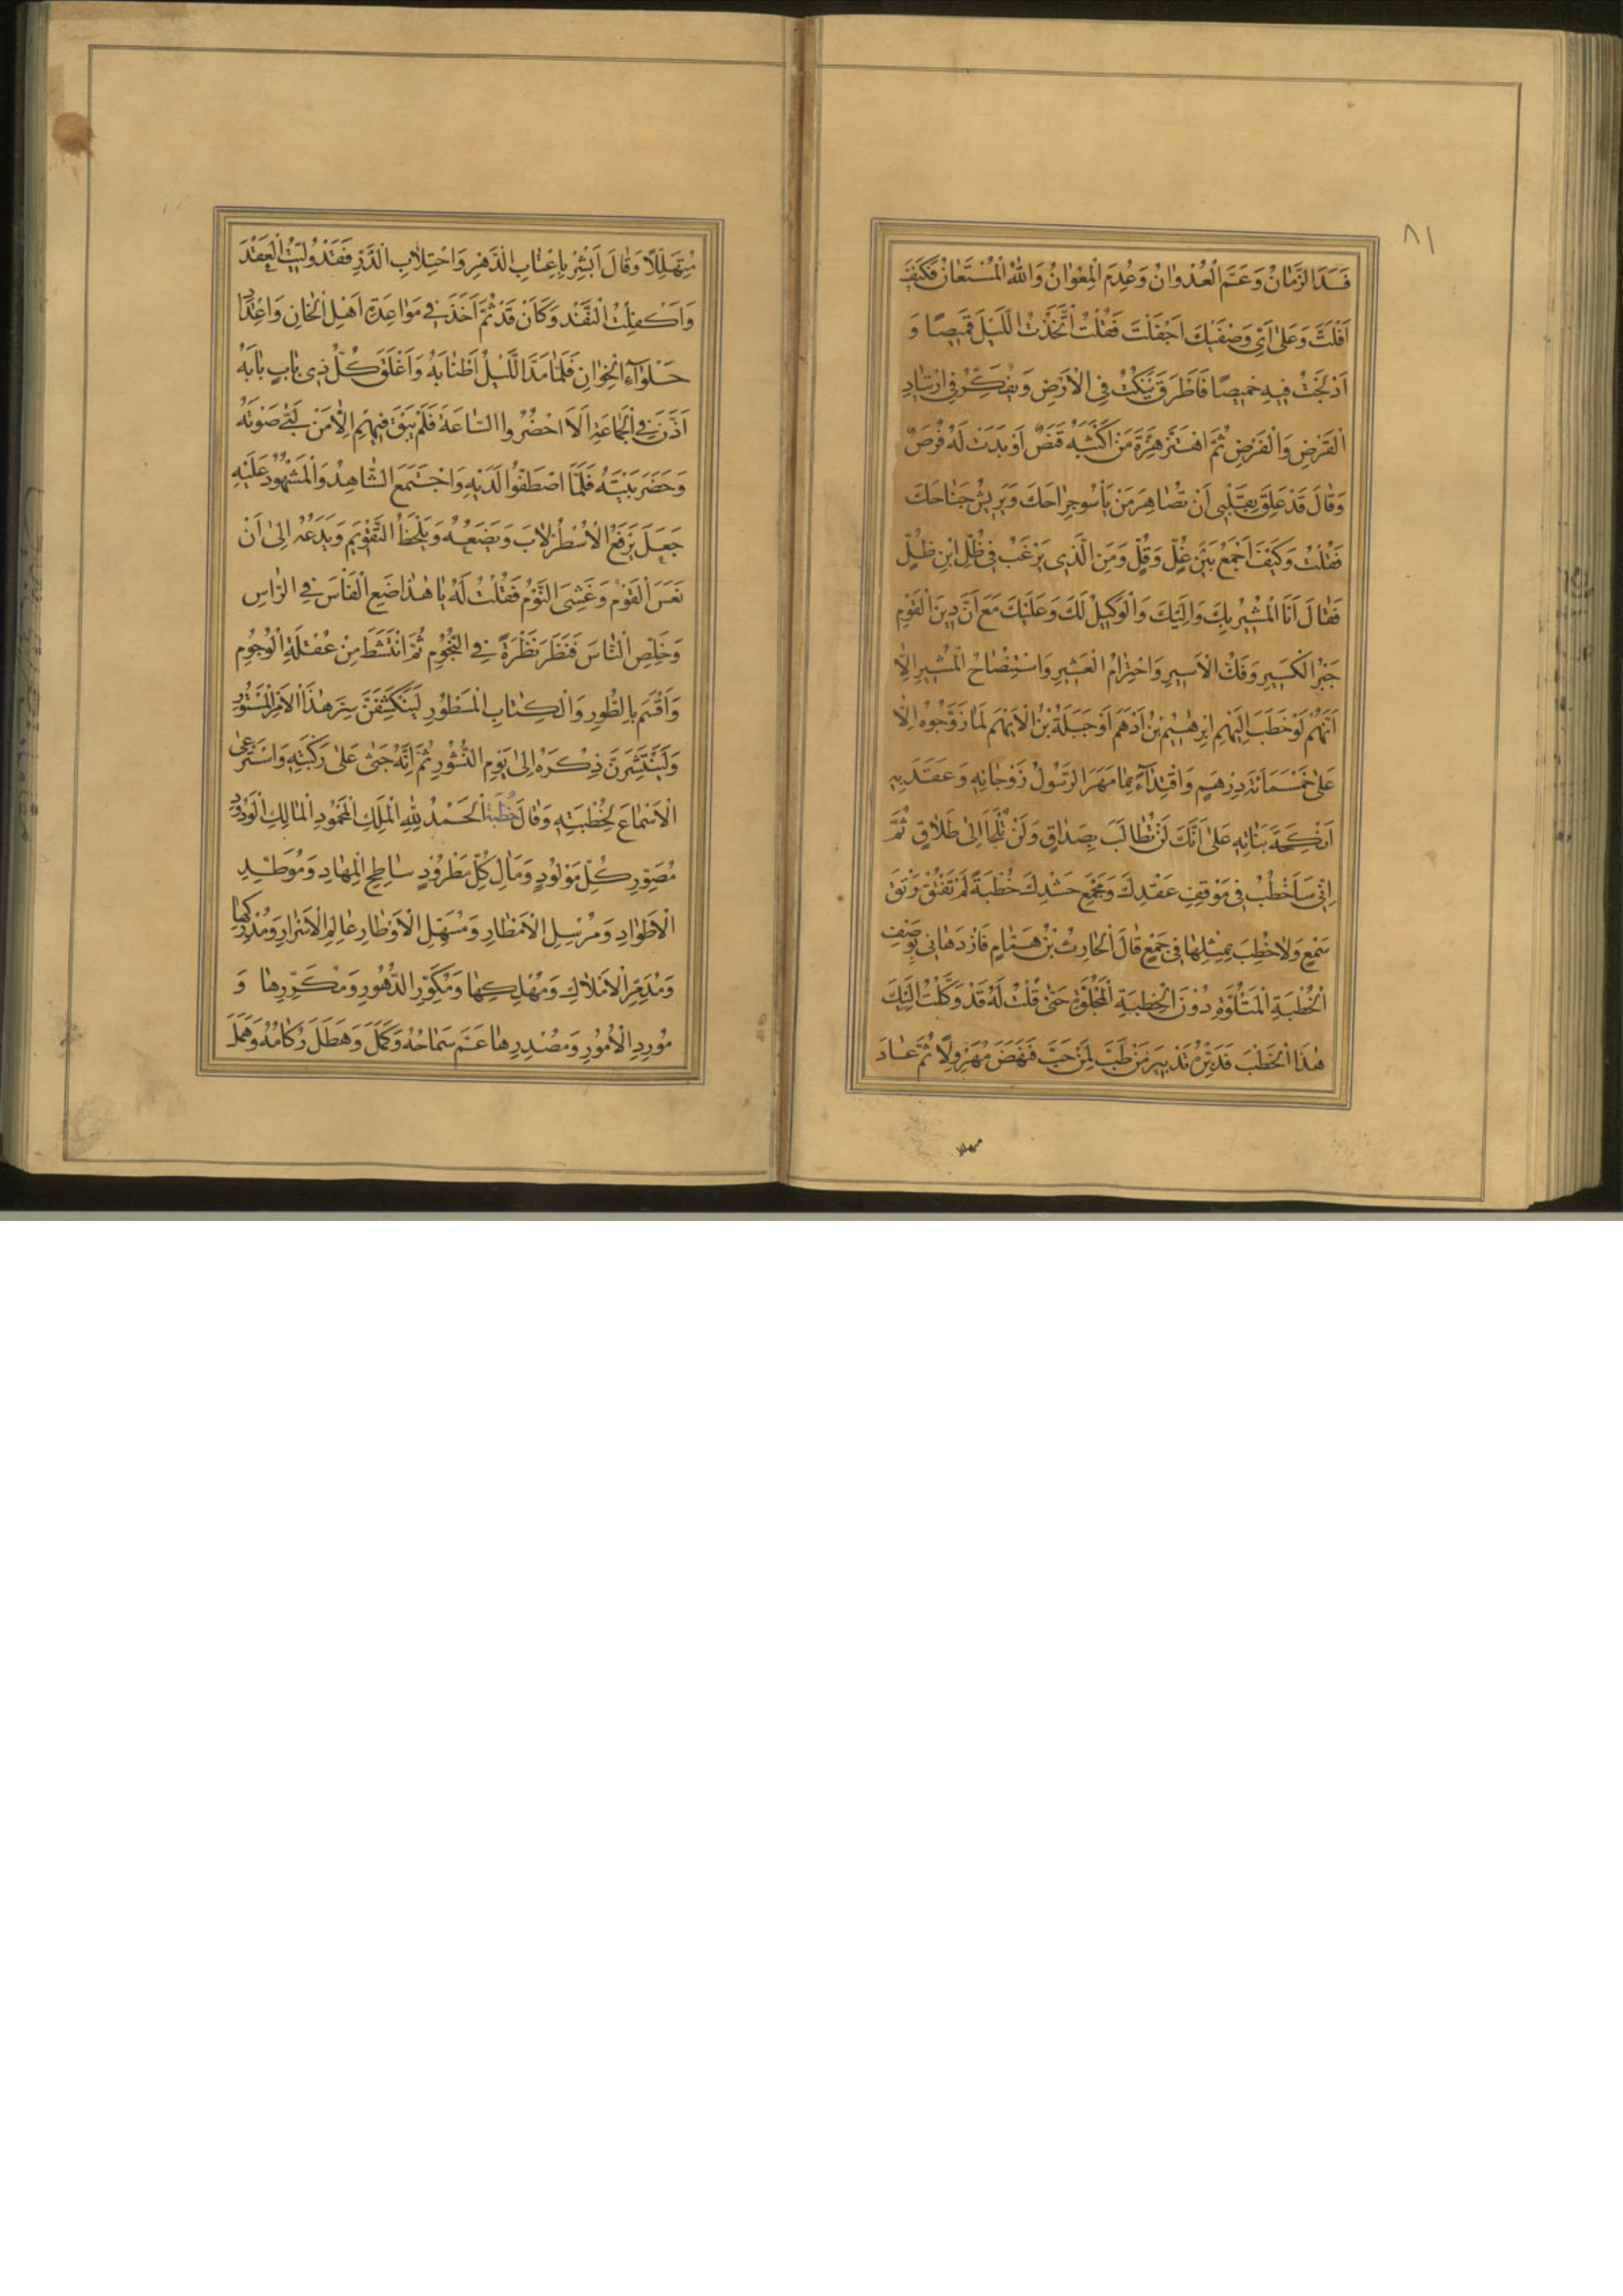 ٨١
فَسَدَ الزَّمَانُ وَعَمَّ الْعُدْوَانُ وَعُدِمَ الْمِعْوَانُ وَاللّٰهُ الْمُسْتَعَانُ فَكَيْفَ
اَفْلَتَّ وَعَلٰى اَيِّ وَصْفَيْكَ اَجْفَلْتَ فَقُلْتُ اتَّخَذْتُ اللَّيْلَ قَمِيصًا وَ
اَدْلَجْتُ فِيهِ خَمِيصًا فَاَطْرَقَ يَنْكُتُ فِي الْاَرْضِ وَيُفَكِّرُ فِي ارْتِيَادِ
الْقَرْضِ وَالْفَرْضِ ثُمَّ اهْتَزَّ هِزَّةَ مَنْ اَكْثَبَهُ قَنَصٌ اَوْ بَدَتْ لَهُ فُرَصٌ
وَقَالَ قَدْ عَلِقَ بِقَلْبِي اَنْ تُصَاهِرَ مَنْ يَأْسُو جِرَاحَكَ وَيَرِيشُ جَنَاحَكَ
فَقُلْتُ وَكَيْفَ اَجْمَعُ بَيْنَ غُلٍّ وَقُلٍّ وَمَنِ الَّذِي يَرْغَبُ فِي ضُلِّ ابْنِ ضُلٍّ
فَقَالَ اَنَا الْمُشِيرُ بِكَ وَاِلَيْكَ وَالْوَكِيلُ لَكَ وَعَلَيْكَ مَعَ اَنَّ دِينَ الْقَوْمِ
جَبْرُ الْكَسِيرِ وَفَكُّ الْاَسِيرِ وَاحْتِرَامُ الْعَشِيرِ وَاسْتِنْصَاحُ الْمُشِيرِ اِلَّا
اَنَّهُمْ لَوْ خَطَبَ اِلَيْهِمْ اِبْرٰهِيْمُ بْنُ اَدْهَمَ اَوْ جَبَلَةُ بْنُ الْاَيْهَمِ لَمَا زَوَّجُوهُ اِلَّا
عَلٰى خَمْسِمَائَةِ دِرْهَمٍ وَاقْتِدَآءً بِمَا مَهَرَ الرَّسُولُ زَوْجَاتِهِ وَعَقَدَ بِهِ
اَنْكِحَةَ بَنَاتِهِ عَلٰى اَنَّكَ لَنْ تُطَالَبَ بِصَدَاقٍ وَلَنْ تُلْجَأَ اِلٰى طَلَاقٍ ثُمَّ
اِنِّي سَاَخْطُبُ فِي مَوْقِفِ عَقْدِكَ وَمَجْمَعِ حَشْدِكَ خُطْبَةً لَمْ تَفْتُقْ رَتْقَ
سَمْعٍ وَلَا خُطِبَ بِمِثْلِهَا فِي جَمْعٍ قَالَ الْحَارِثُ بْنُ هَمَّامٍ فَازْدَهَانِي بِوَصْفِ
الْخُطْبَةِ الْمَتْلُوَّةِ دُوْنَ الْخِطْبَةِ الْمَجْلُوَّةِ حَتّٰى قُلْتُ لَهُ قَدْ وَكَّلْتُ اِلَيْكَ
هٰذَا الْخَطْبَ فَدَبِّرْهُ تَدْبِيرَ مَنْ طَبَّ لِمَنْ حَبَّ فَنَهَضَ مُهَرْوِلًا ثُمَّ عَادَ
متهللا
مُتَهَلِّلًا وَقَالَ اَبْشِرْ بِاِعْتَابِ الدَّهْرِ وَاحْتِلَابِ الدَّرِّ فَقَدْ وُلِّيتُ الْعَقْدَ
وَاُكْفِلْتُ النَّقْدَ وَكَاَنْ قَدْ ثُمَّ اَخَذَ فِي مَوَاعَدَةِ اَهْلِ الْخَانِ وَاِعْدَادِ
حَلْوَآءِ الْخِوَانِ فَلَمَّا مَدَّ اللَّيْلُ اَطْنَابَهُ وَاَغْلَقَ كُلُّ ذِي بَابٍ بَابَهُ
اَذَّنَ فِي الْجَمَاعَةِ اَلَا احْضُرُوا السَّاعَةَ فَلَمْ يَبْقَ فِيهِمْ اِلَّا مَنْ لَبّٰى صَوْتَهُ
وَحَضَرَ بَيْتَهُ فَلَمَّا اصْطَفُّوا لَدَيْهِ وَاجْتَمَعَ الشَّاهِدُ وَالْمَشْهُودُ عَلَيْهِ
جَعَلَ يَرْفَعُ الْاُسْطُرْلَابَ وَيَضَعُهُ وَيَلْحَظُ التَّقْوِيمَ وَيَدَعُهُ اِلٰى اَنْ
نَعَسَ الْقَوْمُ وَغَشِيَ النَّوْمُ فَقُلْتُ لَهُ يَا هٰذَا ضَعِ الْفَأْسَ فِي الرَّاسِ
وَخَلِّصِ النَّاسَ فَنَظَرَ نَظْرَةً فِي النُّجُوْمِ ثُمَّ انْتَشَطَ مِنْ عُقْلَةِ الْوُجُوْمِ
وَاَقْسَمَ بِالطُّورِ وَالْكِتَابِ الْمَسْطُوْرِ لَيَنْكَشِفَنَّ سِرُّ هٰذَا الْاَمْرِ الْمَسْتُوْرِ
وَلَيَنْتَشِرَنَّ ذِكْرُهُ اِلٰى يَوْمِ النُّشُوْرِ ثُمَّ اِنَّهُ جَثٰى عَلٰى رُكْبَتِهِ وَاسْتَرْعٰى
الْاَسْمَاعَ لِخُطْبَتِهِ وَقَالَ خُطْبَة الْحَمْدُ لِلّٰهِ الْمَلِكِ الْمَحْمُودِ الْمَالِكِ الْوَدُوْدِ
مُصَوِّرِ كُلِّ مَوْلُوْدٍ وَمَاٰلِ كُلِّ مَطْرُوْدٍ سَاطِحِ الْمِهَادِ وَمُوَطِّدِ
الْاَطْوَادِ وَمُرْسِلِ الْاَمْطَارِ وَمُسَهِّلِ الْاَوْطَارِ عَالِمِ الْاَسْرَارِ وَمُدْرِكِهَا
وَمُدَمِّرِ الْاَمْلَاكِ وَمُهْلِكِهَا وَمُكَوِّرِ الدُّهُوْرِ وَمُكَرِّرِهَا وَ
مُوْرِدِ الْاُمُوْرِ وَمُصْدِرِهَا عَمَّ سَمَاحُهُ وَكَمَلَ وَهَطَلَ رُكَامُهُ وَهَمَلَ